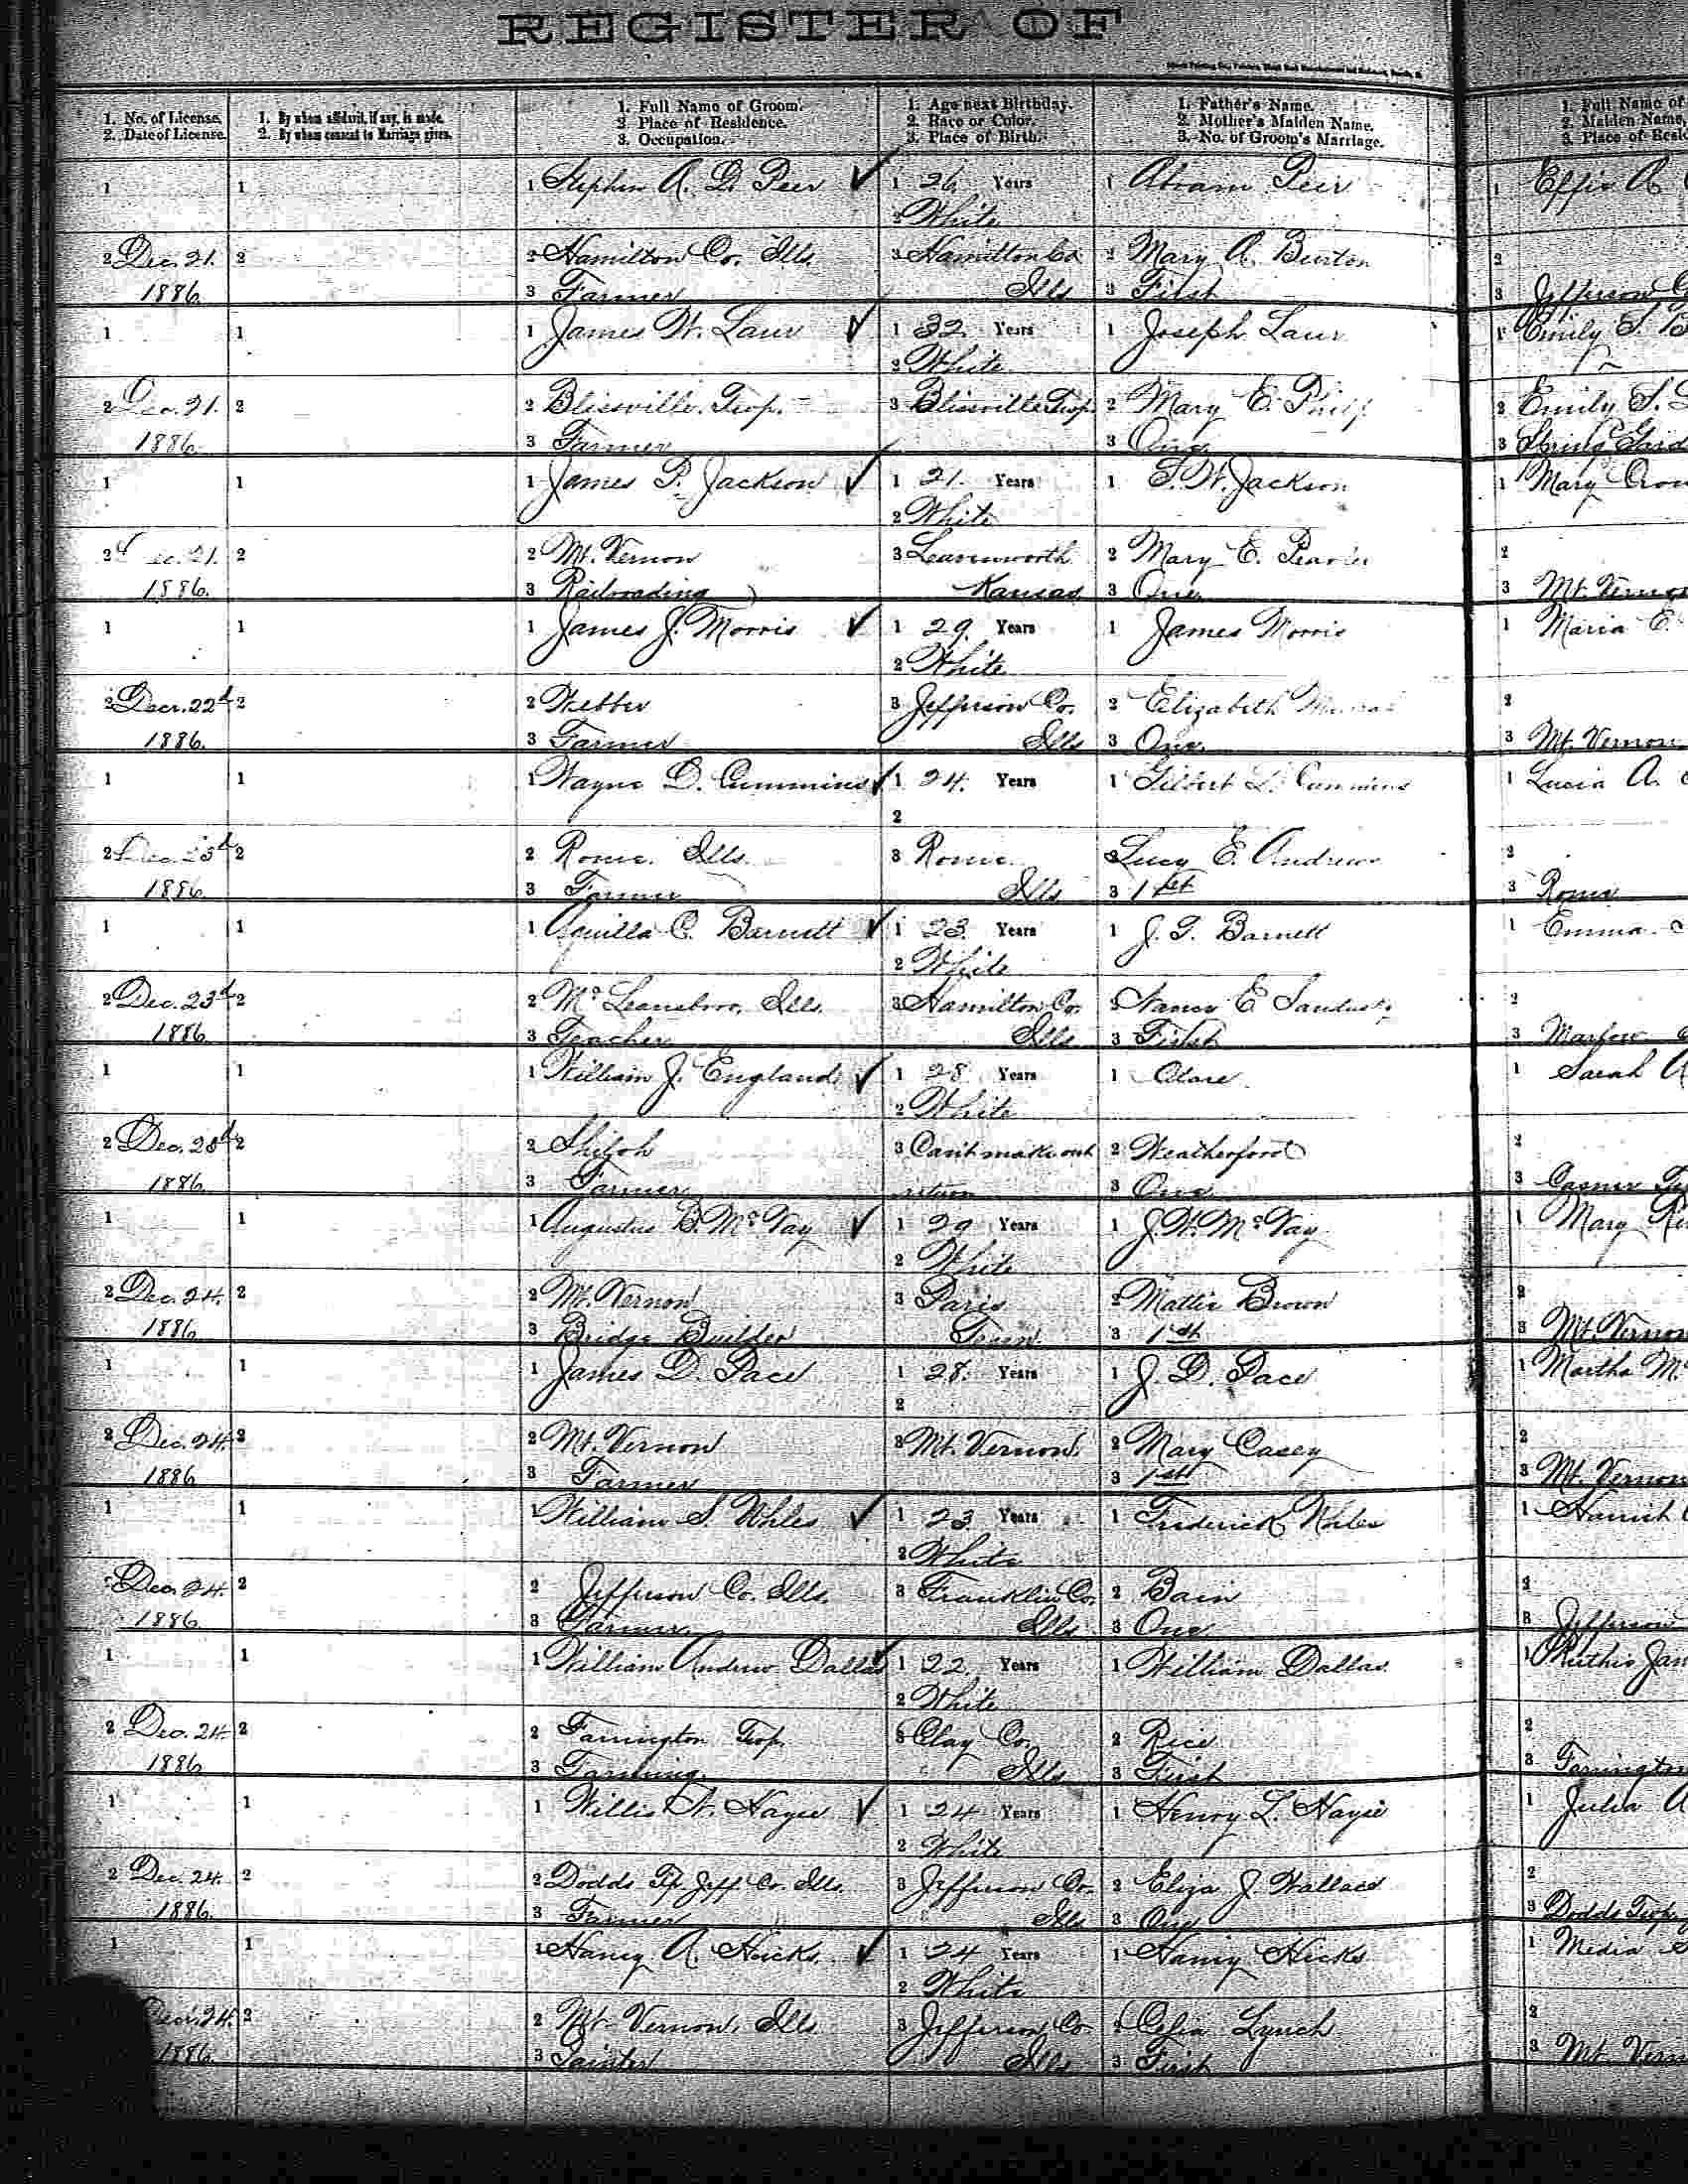 REGISTER OF
1. No. of License. 2. Date of License.
1. By whom affidavit, if any, is made. 2. By whom consent to Marriage given.
1. Full Name of Groom. 2 Place of Residence. 3. Occupation.
1. Age next Birthday. 2. Race or Color. 3. Place of Birth.
1. Father's Name. 2. Mother's Maiden Name. 3. No. of Groom's Marriage.
1. Full Name of 2. Maiden Name, 3. Place of
1 1 1 Stephen A. D. Peer 1 26 Years 1 Abram Peer 1 Effie A
2 White
2 Dec. 21. 2 2 Hamilton Co. Ills. 3 Hamilton Co 2 Mary A. Burton 2
1886. 3 Farmer Ills 3 First 3 Jefferson
1 1 1 James W. Laur 1 32 Years 1 Joseph Laur 1 Emily S.
2 White
2 Dec. 21. 2 2 Blissville Twp. 3 Blissville Twp. 2 Mary E. 2 Emily S.
1886. 3 Farmer 3 One 3 Spring Gard
1 1 1 James P. Jackson 1 21. Years 1 S. W. Jackson 1 Mary
2 White
2 Dec. 21. 2 2 Mt. Vernon 3 Leavenworth 2 Mary E. 2
1886. 3 Railroading Kansas 3 One 3 Mt. Vernon
1 1 1 James J. Morris 1 29. Years 1 James Morris 1 Maria E.
2 White
2 Decr. 22d 2 2 Webber 3 Jefferson Co. 2 Elizabeth 2
1886. 3 Farmer Ills 3 One 3 Mt. Vernon
1 1 1 Wayne D. Cummins 1 24. Years 1 Gilbert L. Cummins 1 Lucia A.
2
2 Dec. 23d 2 2 Rome. Ills. 3 Rome. 2 Lucy E. Andrews 2
1886. 3 Farmer Ills 3 1st 3 Rome
1 1 1 Aquilla C. Barnett 1 23. Years 1 J. G. Barnett 1 Emma
2 White
2 Dec. 23d 2 2 Mc Leansboro, Ills. 3 Hamilton Co. 2 Nancy E. 2
1886 3 Teacher Ills 3 First 3 Marlow
1 1 1 William J. England 1 28 Years 1 1 Sarah A
2 White
2 Dec. 23d 2 2 Shiloh 3 Can't make out 2 Weatherford 2
1886. 3 Farmer return 3 One 3 Casner
1 1 1 Augustus B. Mc Vay 1 29 Years 1 J. W. Mc Vay 1 Mary
2 White
2 Dec. 24. 2 2 Mt. Vernon 3 Paris 2 Mattie Brown 2
1886 3 Bridge Builder Tenn 3 1st 3 Mt. Vernon
1 1 1 James D. Pace 1 28. Years 1 J. D. Pace 1 Martha M.
2
2 Dec. 24. 2 2 Mt. Vernon 3 Mt. Vernon. 2 Mary Casey 2
1886 3 Farmer 3 1st 3 Mt. Vernon
1 1 1 William S. Uhles 1 23. Years 1 Frederick Uhles 1
2 White
2 Dec. 24. 2 2 Jefferson Co. Ills. 3 Franklin Co. 2 Bain 2
1886. 3 Farmer Ills. 3 One 3 Jefferson
1 1 1 William Andrew Dallas 1 22. Years 1 William Dallas. 1
2 White
2 Dec. 24. 2 2 Farrington Twp. 3 Clay Co. 2 Rice 2
1886 3 Farming. Ills 3 First 3 Farrington
1 1 1 Willis W. Hayse 1 24 Years 1 Henry L. Hayse 1 Julia A
2 White
2 Dec. 24. 2 2 Dodds Tp. Jeff. Co. Ills. 3 Jefferson Co. 2 Eliza J. Wallace 2
1886. 3 Farmer Ills 3 One 3 Dodds Twp.
1 1 1 A. Hicks. 1 24 Years 1 Hicks 1 Media
2 White
Dec. 24. 2 2 Mt. Vernon, Ills. 3 Jefferson Co. 2 Celia Lynch 2
1886. 3 Painter Ills 3 First 3 Mt. Vern